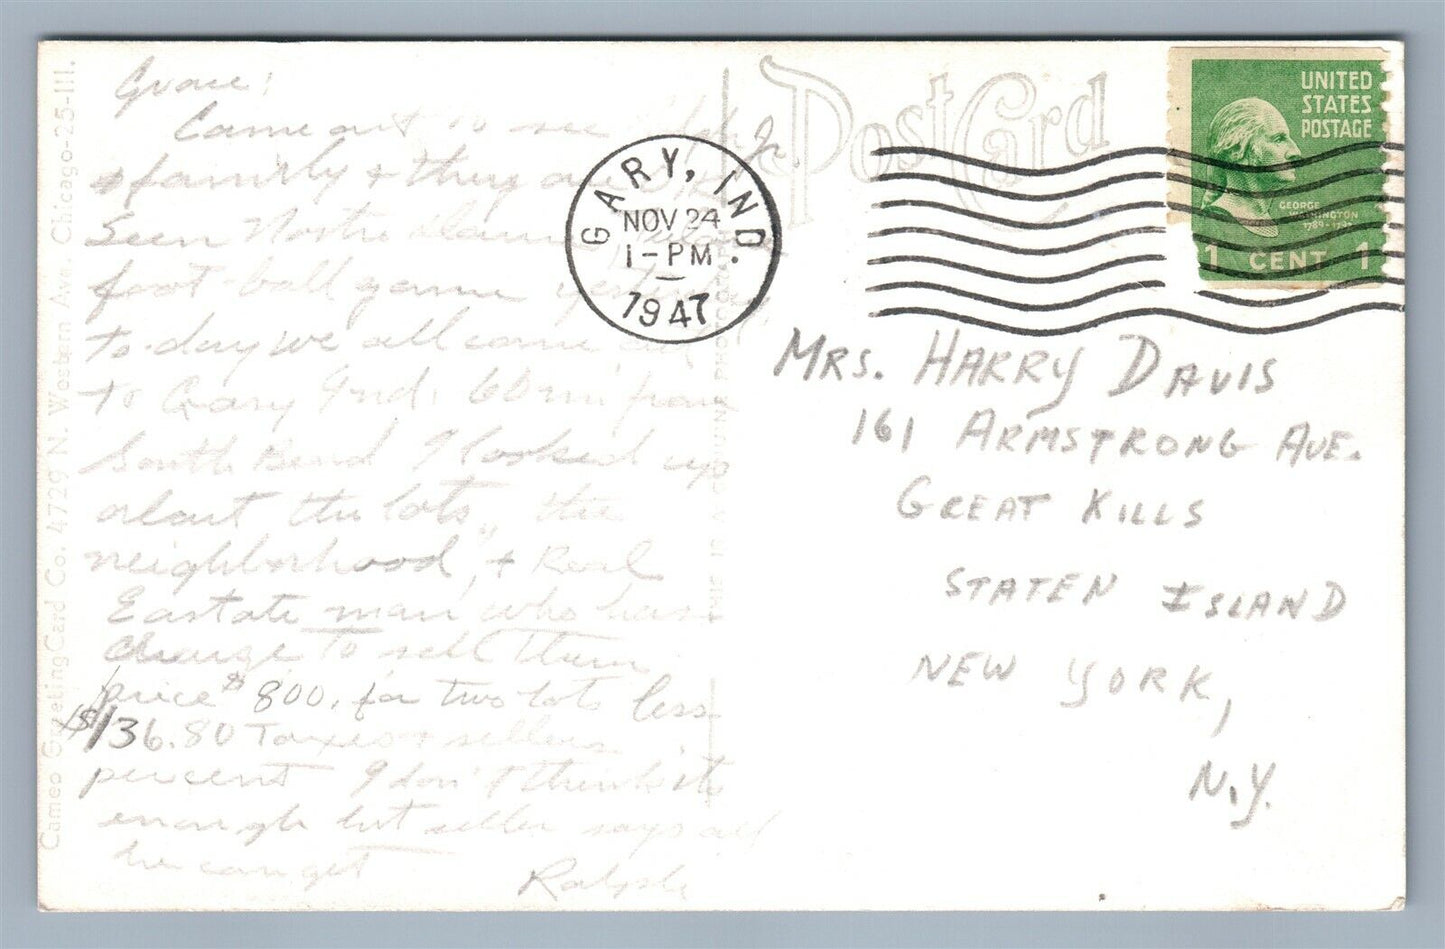 Grace:
Came out to see Jr.
+ family + they are
Seen Notre Dame
foot-ball game yesterday
to-day we all came out
to Gary Ind. 60 mi from
South Bend I looked up
about the lots, the
neighborhood, + Real
Eastate man who has
charge to sell them
price $800. for two lots less
$136.80 Taxes + sellers
percent I don't think its
enough but seller says all
he can get
Ralph
Post Card
GARY, IND.
NOV 24
1-PM
1947
UNITED
STATES
POSTAGE
GEORGE
WASHINGTON
1 CENT 1
MRS. HARRY DAVIS
161 ARMSTRONG AVE.
GREAT KILLS
STATEN ISLAND
NEW YORK,
N.Y.
Cameo Greeting Card Co. 4729 N. Western Ave. Chicago-25-Ill.
THIS IS A GENUINE